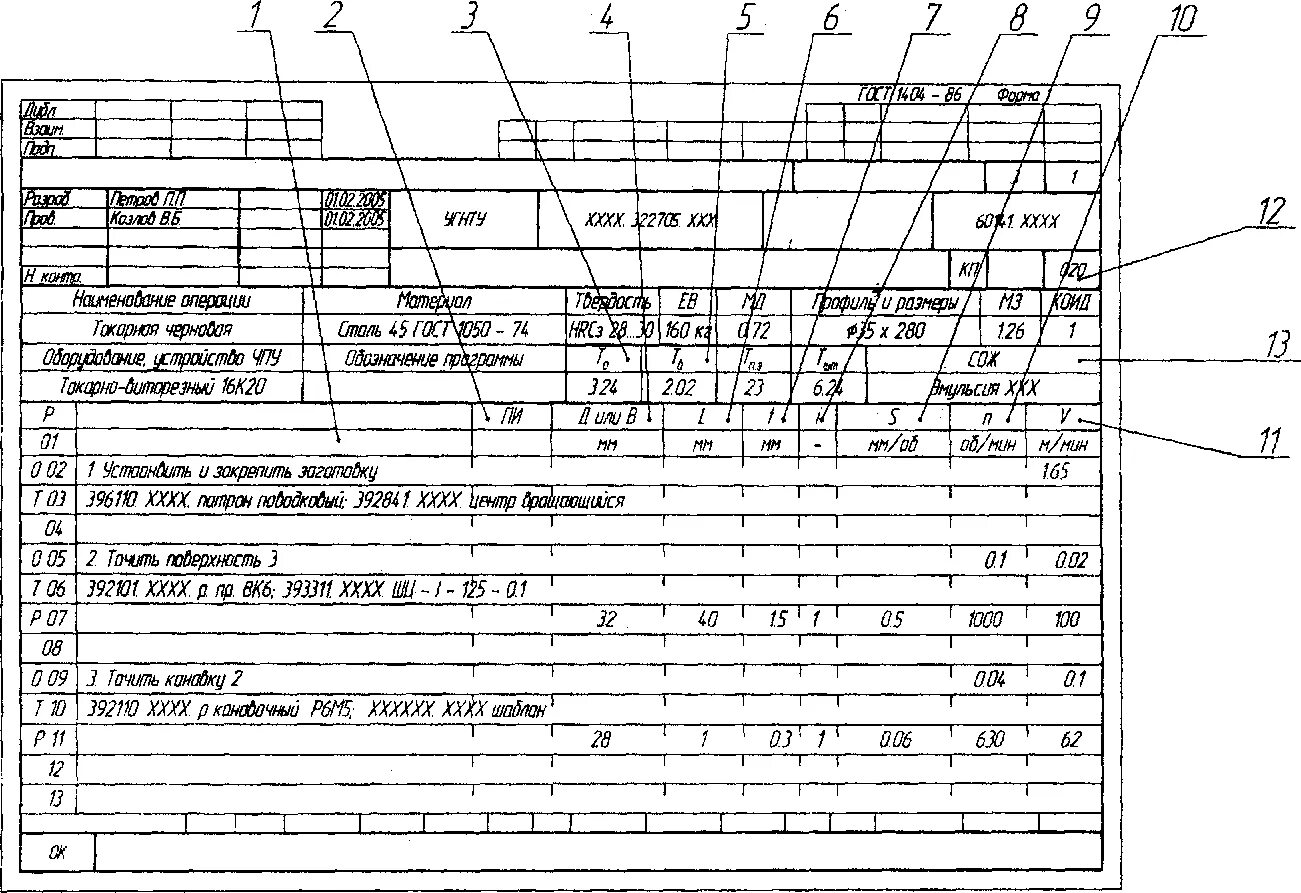 1 2 3 4 5 6 7 8 9 10
ГОСТ 1404 - 86 Форма
Дубл.
Взаим.
Подп.
1
Разраб. Петров П.П. 01.02.2005
Пров. Козлов В.Б. 01.02.2005
УГНТУ ХХХХ. 322705. ХХХ 60141. ХХХХ
12
Н. контр. КП 020
Наименование операции Материал Твердость ЕВ МД Профиль и размеры МЗ КОИД
Токарная черновая Сталь 45 ГОСТ 1050 - 74 HRCз 28...30 160 кг 0.72 ф35 х 280 1.26 1
13
Оборудование, устройство ЧПУ Обозначение программы То Тв Тп.з Тшт СОЖ
Токарно-виторезный 16К20 3.24 2.02 23 6.24 Эмульсия ХХХ
Р ПИ Д или В L t i S n V
01 мм мм мм - мм/об об/мин м/мин
11
О 02 1. Установить и закрепить заготовку 1.65
Т 03 396110. ХХХХ. патрон поводковый; 392841. ХХХХ. центр вращающийся
04
О 05 2. Точить поверхность 3 0.1 0.02
Т 06 392101. ХХХХ. р. пр. ВК6; 393311. ХХХХ. ШЦ - I - 125 - 0.1
Р 07 32 40 1.5 1 0.5 1000 100
08
О 09 3. Точить канавку 2 0.04 0.1
Т 10 392110 ХХХХ. р канавочный Р6М5; ХХХХХХ. ХХХХ шаблон
Р 11 28 1 0.3 1 0.06 630 62
12
13
ОК